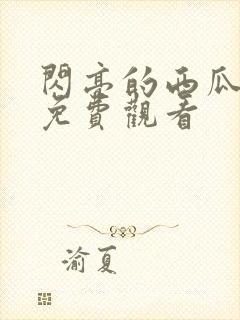 閃亮的西瓜
免費觀看
渝夏